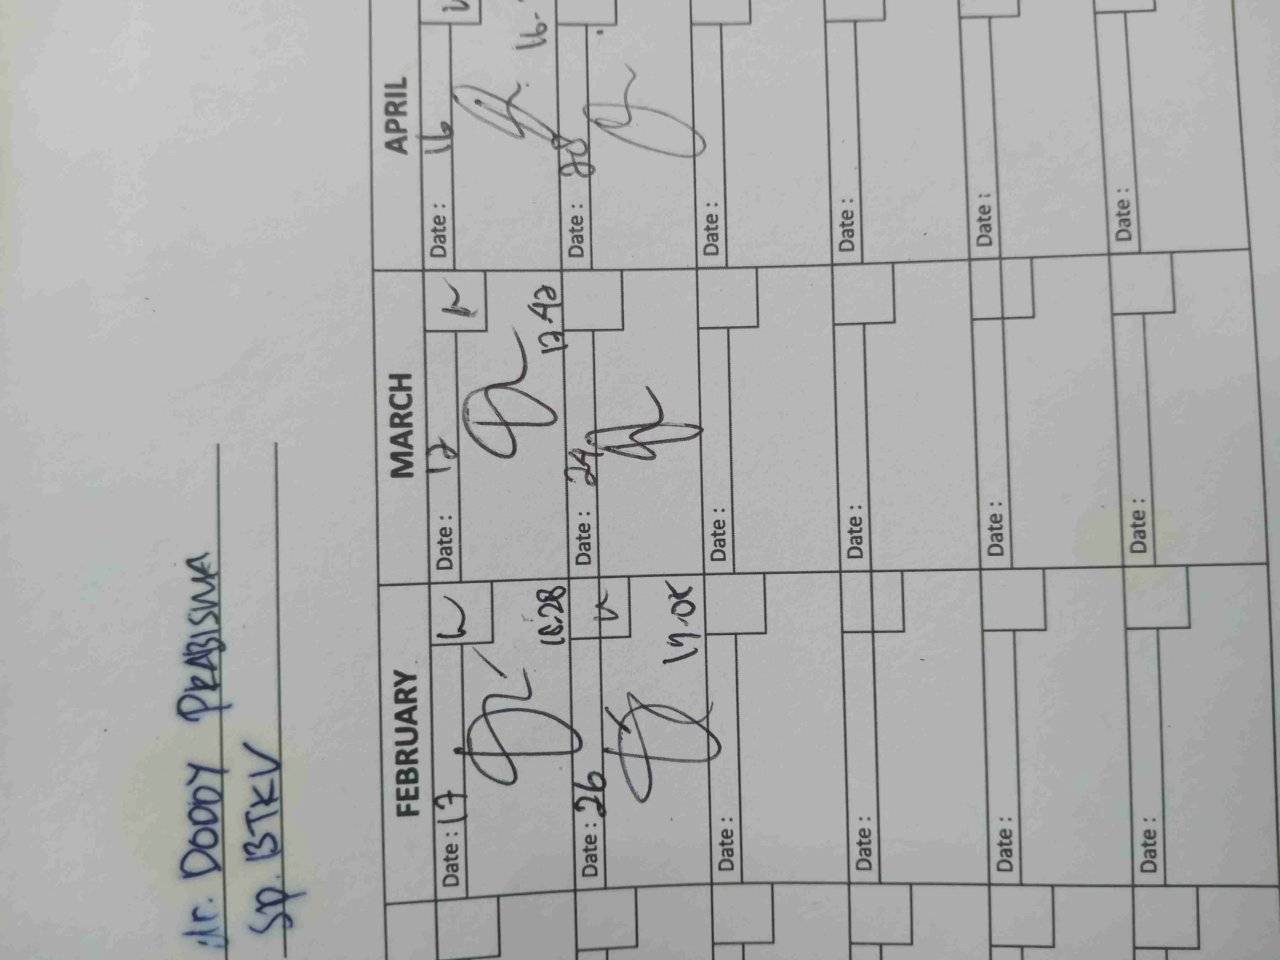 dr. DODDY PRABISMA
Sp. BTKV
FEBRUARY MARCH APRIL
Date : 17 Date : 12 Date : 16
12.42
Date : 26 Date : 24 Date : 28
Date : Date : Date :
Date : Date : Date :
Date : Date : Date :
Date : Date : Date :